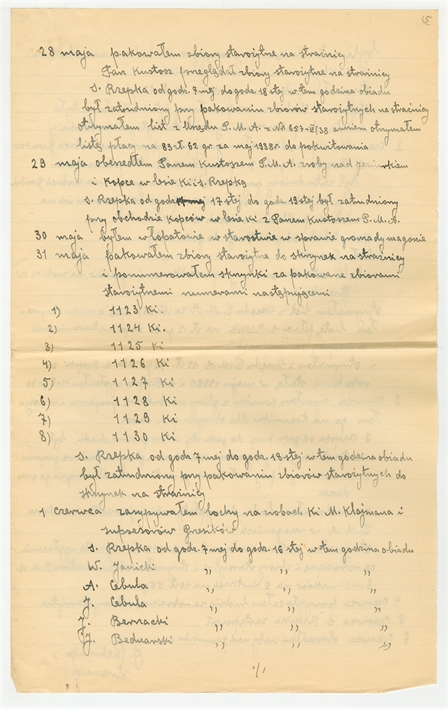 5
28 maja pakowałem zbiory starożytne na strażnicy
Pan Kustosz przeglądał zbiory starożytne na strażnicy
S. Rzepka od godz. 7 mej do godz 18 stej w tem godzina obiadu
był zatrudniony przy pakowaniu zbiorów starożytnych na strażnicy
otrzymałem list z Urzędu P.M.A. z Nd 657-III/38 otrzymałem
listę płacy na 83 zł. 62 gr. za maj 1938 r. do pokwitowania
29 maja obeszedłem Panem Kustoszem P.M.A. nad
i kopce w lesie Ki i S. Rzepką
S. Rzepka od godz 17 stej do godz 19 stej był zatrudniony
przy obchodzie kopców w lesie Ki z Panem Kustoszem P.M.A.
30 maja byłem w Łopatowie w starostwie w sprawie
31 maja pakowałem zbiory starożytne do skrzynek na strażnicy
i ponumerowałem skrzynki za pakowane zbiorami
starożytnemi numerami następującemi
1) 1123 Ki
2) 1124 Ki.
3) 1125 Ki
4) 1126 Ki
5) 1127 Ki
6) 1128 Ki
7) 1129 Ki
8) 1130 Ki
S. Rzepka od godz 7 mej do godz. 18 stej w tem godzina obiadu
był zatrudniony przy pakowaniu zbiorów starożytnych do
skrzynek na strażnicy
1 czerwca zasypywałem dochy na ziobach Ki M. Klajmana i
sukcesorów Gresików
S. Rzepka od godz. 7 mej do godz. 16 stej w tem godzina obiadu
W. Janicki ,, ,, ,,
A. Cebula ,, ,, ,,
J. Cebula ,, ,, ,,
J. Bernacki ,, ,, ,,
J. Bednarski ,, ,, ,,
·/·